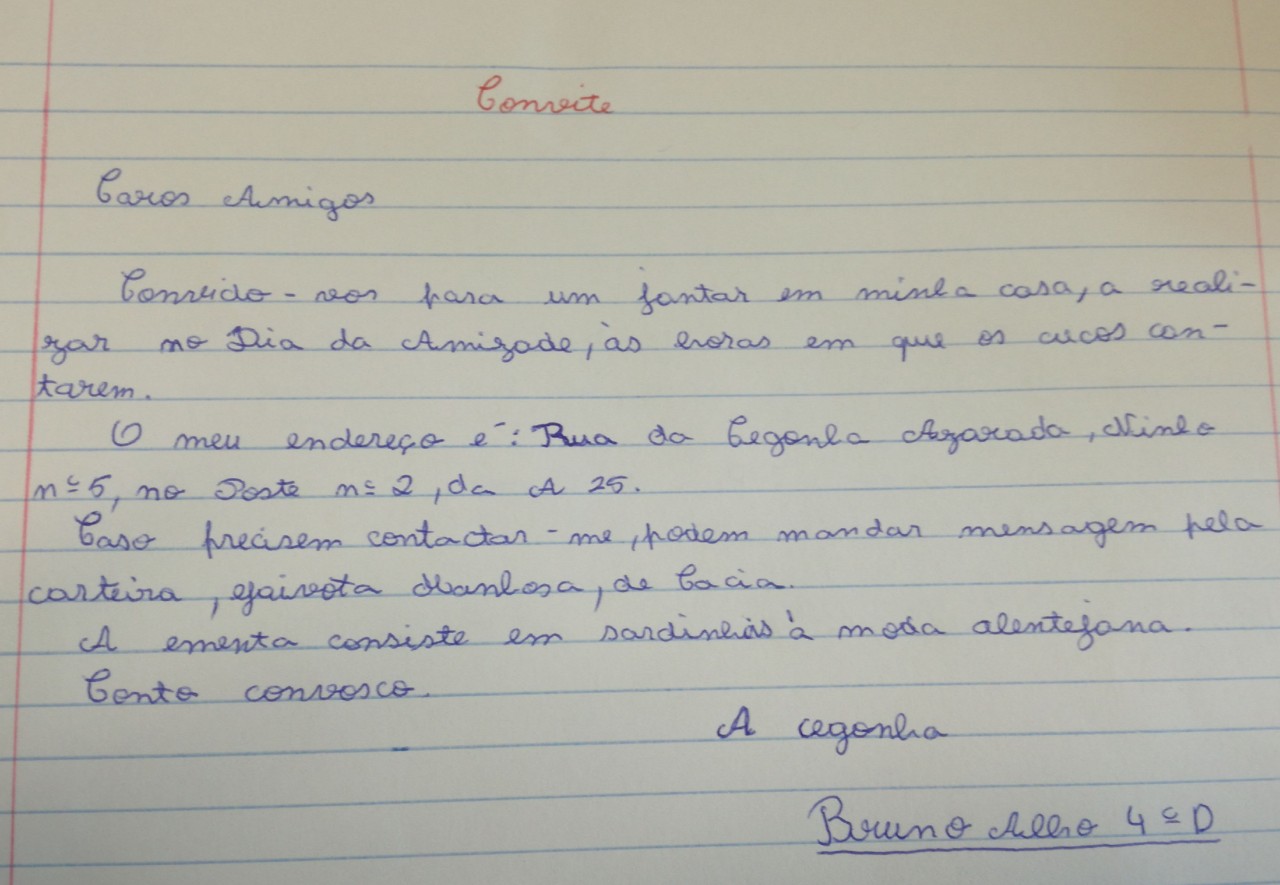 Convite
Caros Amigos
Convido-vos para um jantar em minha casa, a reali-
zar no Dia da Amizade, às horas em que os cucos can-
tarem.
O meu endereço é: Rua da Cegonha Azarada, Ninho
nº 5, no Poste nº 2, da A 25.
Caso precisem contactar-me, podem mandar mensagem pela
carteira, gaivota Manhosa, de Cacia.
A ementa consiste em sardinhas à moda alentejana.
Conto convosco.
A cegonha
Bruno Alho 4º D